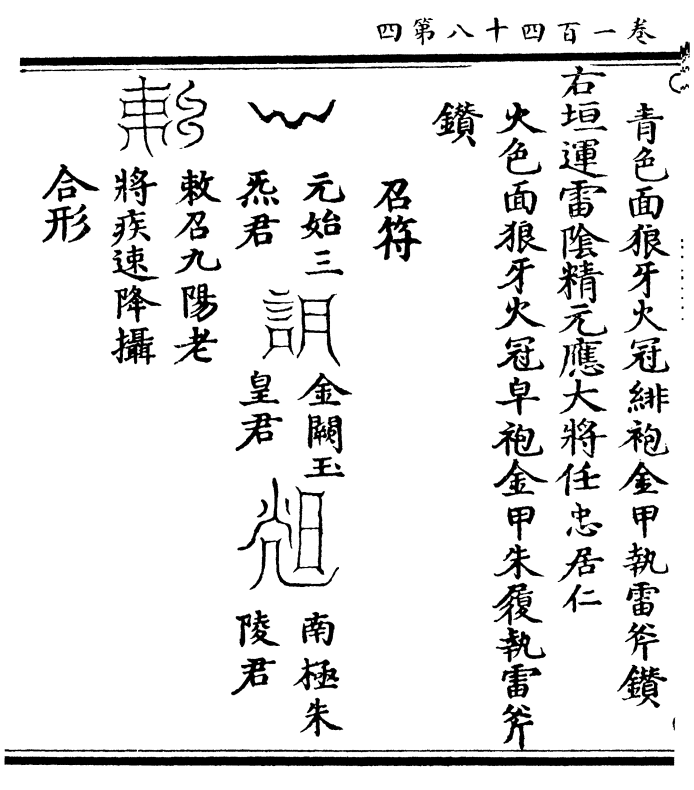 卷一百四十八第四
青色面狼牙火冠緋袍金甲執雷斧鑚
右垣運雷陰精元應大將任忠居仁
火色面狼牙火冠皁袍金甲朱履執雷斧
鑚
召符
元始三
炁君
金闕玉
皇君
南極朱
陵君
敕召九陽老
將疾速降攝
合形